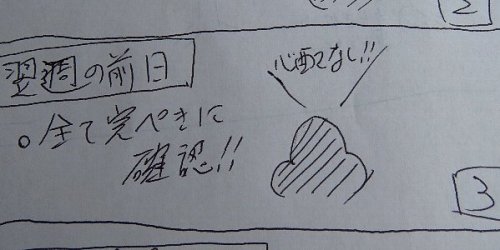 2
翌週の前日
心配なし!!
。全て完ぺきに
確認!!
3